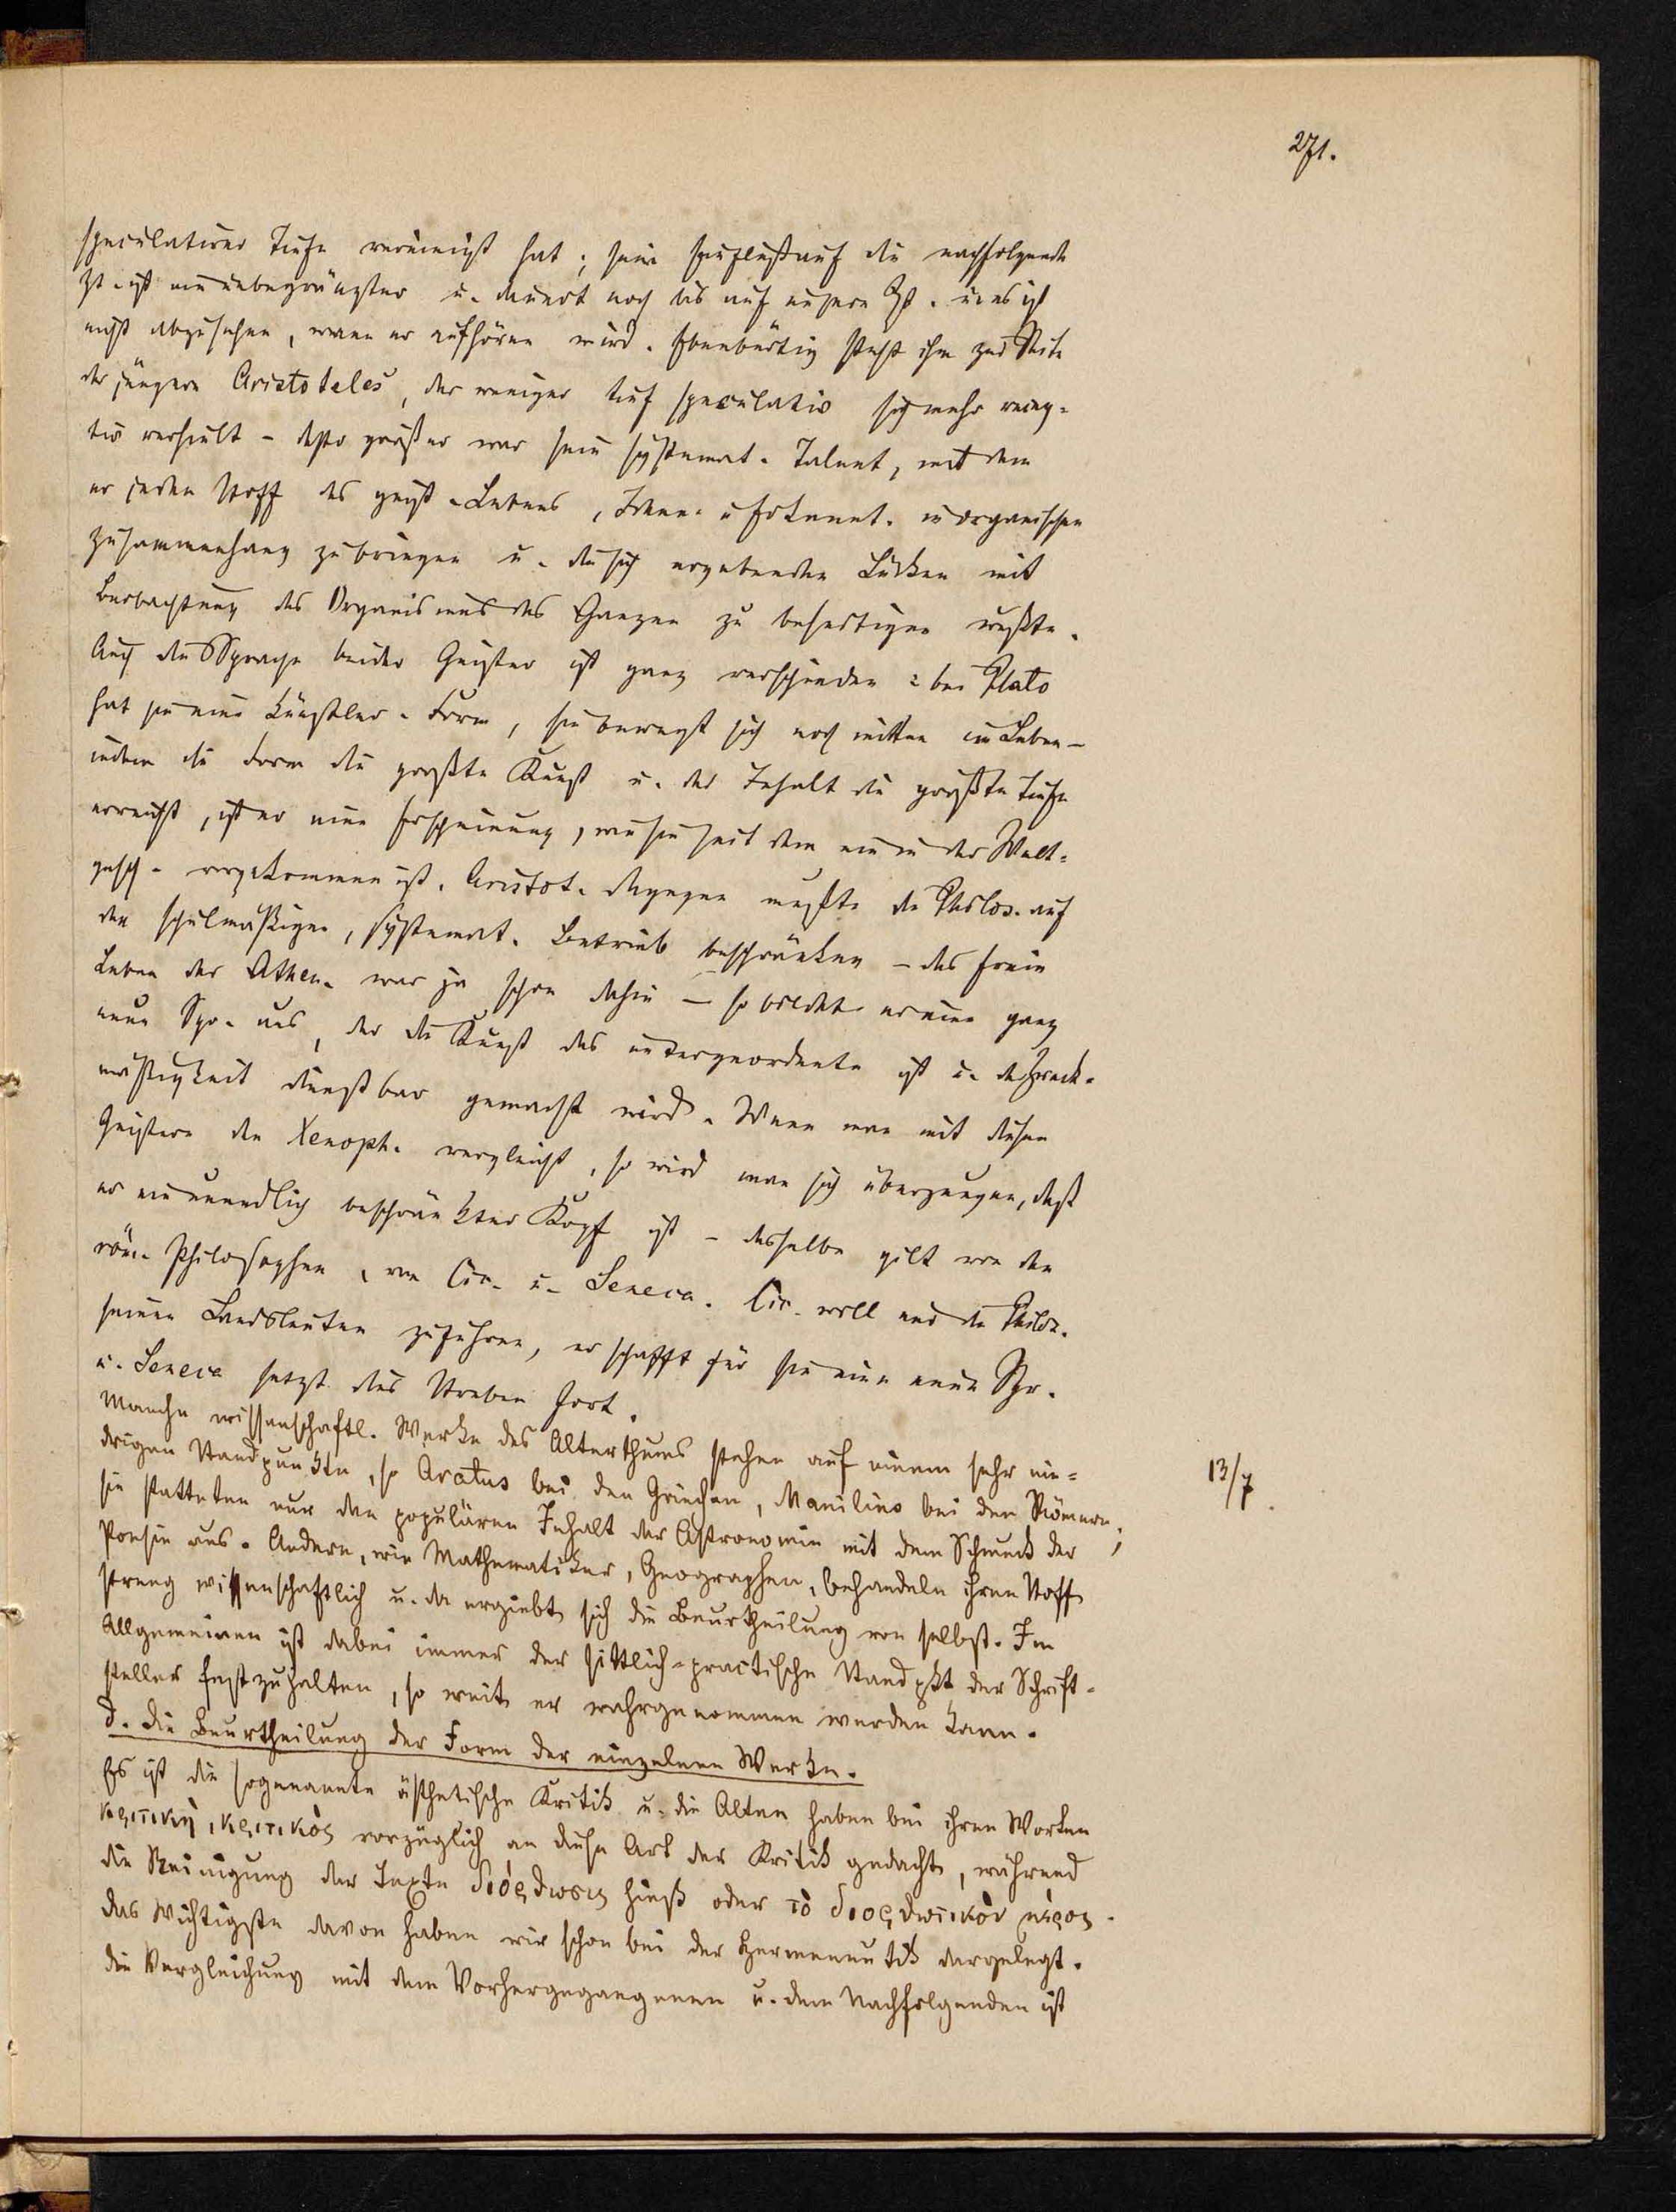 271.
speculativer Tiefe vereinigt hat; sein Einfluß auf die nachfolgende
Zt. ist ein unbegränzter u. dauert noch bis auf unsere Zt. u. es ist
nicht abzusehen, wann er aufhören wird. Ebenbürtig steht ihm zur Seite
der jüngere Aristoteles, der weniger tief speculativ sich mehr recep-
tiv verhielt - desto größer war sein systemat. Talent, mit dem
er jeden Stoff des geist. Lebens, Ideen u Erkennt. in organischen
Zusammenhang zu bringen u. die sich ergebenden Lücken mit
Beobachtung des Organismus des Ganzen zu beseitigen wußte.
Auch die Sprache beider Geister ist ganz verschieden: bei Plato
hat sie eine Künstler-Form, sie bewegt sich noch mitten im Leben -
indem die Form die größte Kunst u. der Inhalt die größte Tiefe
erreicht, ist er eine Erscheinung, wie sie seit dem nie in der Welt-
gesch. vorgekommen ist. Aristot. dagegen mußte die Philos. auf
den schulmäßigen, systemat. Betrieb beschränken - das freie
Leben der Athen. war ja schon dahin - so bildet er eine ganz
neue Spr. aus, der die Kunst das untergeordnete ist u. der Zweck-
mäßigkeit dienstbar gemacht wird. Wenn man mit diesen
Geistern den Xenoph. vergleicht, so wird man sich überzeugen, daß
er ein unendlich beschränkter Kopf ist - dasselbe gilt von den
röm. Philosophen, von Cic. u. Seneca. Cic. will nur die Philos.
seinen Landsleuten zuführen, er schafft für sie eine neue Spr.
u. Seneca setzt das Streben fort.
Manche wissenschaftl. Werke des Alterthums stehen auf einem sehr nie-
drigen Standpunkte, so Aratus bei den Griechen, Manilius bei den Römern;
13/7.
sie statteten nur den populären Inhalt der Astronomie mit dem Schmuck der
Poesie aus. Andere, wie Mathematiker, Geographen, behandeln ihren Stoff
streng wissenschaftlich u. da ergiebt sich die Beurtheilung von selbst. Im
Allgemeinen ist dabei immer der sittlich-practische Standpkt der Schrift-
steller festzuhalten, so weit er wahrgenommen werden kann.
d. Die Beurtheilung der Form der einzelnen Werke.
Es ist die sogenannte ästhetische Kritik u. die Alten haben bei ihren Worten
κριτικὴ, κριτικὸς vorzüglich an diese Art der Kritik gedacht, während
die Reinigung der Texte διόρθωσις hieß oder τὸ διορθωτικὸν μέρος.
Das Wichtigste davon haben wir schon bei der Hermeneutik dargelegt.
Die Vergleichung mit dem Vorhergegangenen u. dem Nachfolgenden ist